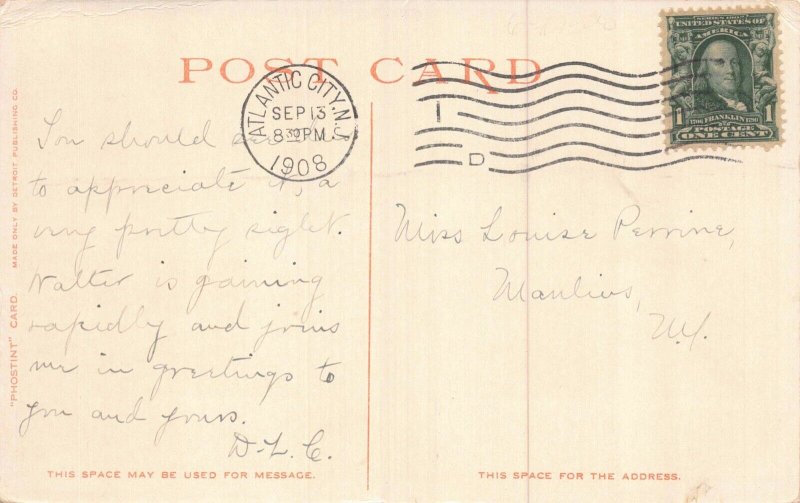 POST CARD
ATLANTIC CITY, N.J.
SEP 13
8 30 PM
1908
I
D
SERIES 1902
UNITED STATES OF
AMERICA
1
1706 FRANKLIN 1790
POSTAGE
ONE CENT
1
You should see this
to appreciate it, a
very pretty sight.
Walter is gaining
rapidly and joins
me in greetings to
you and yours.
D. L. C.
Miss Louise Perrine,
Manlius,
N.Y.
"PHOSTINT" CARD.
MADE ONLY BY DETROIT PUBLISHING CO.
THIS SPACE MAY BE USED FOR MESSAGE.
THIS SPACE FOR THE ADDRESS.